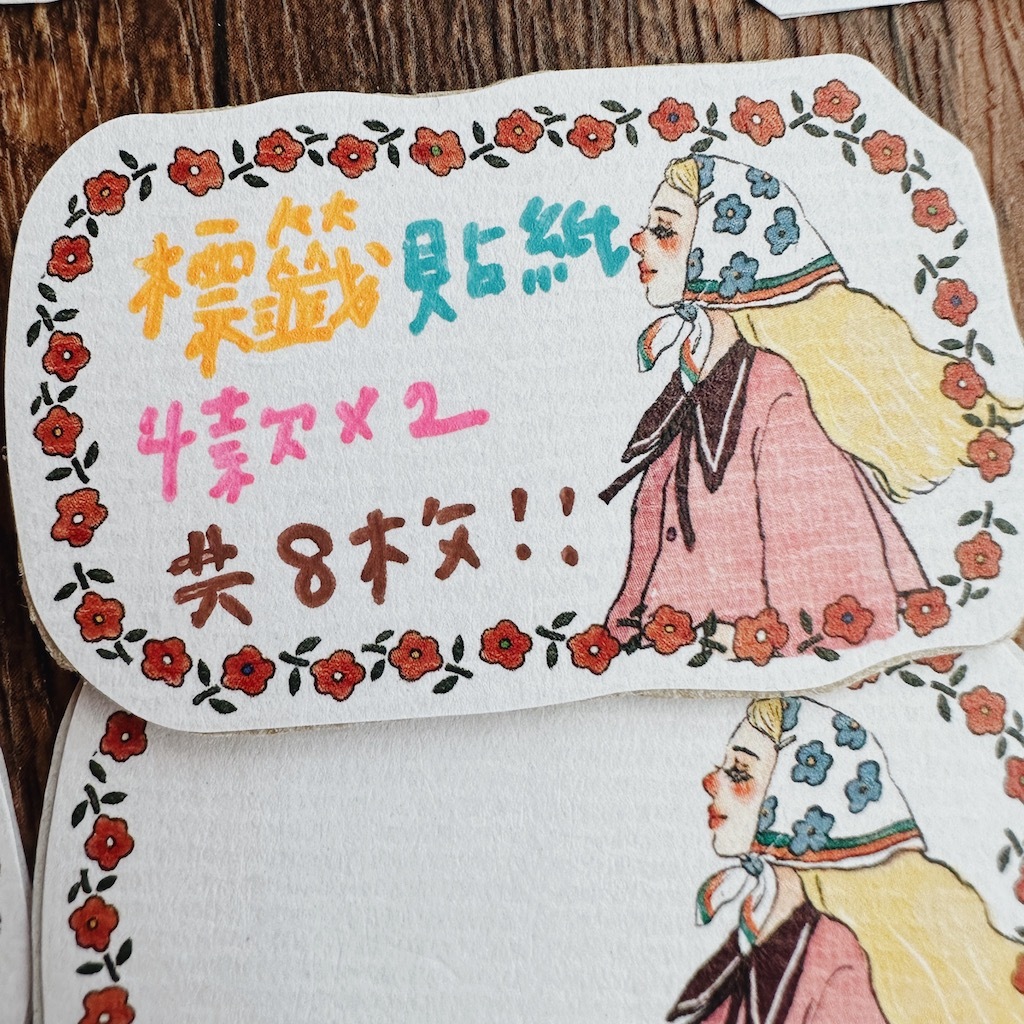 標籤貼紙
4款x2
共8枚!!